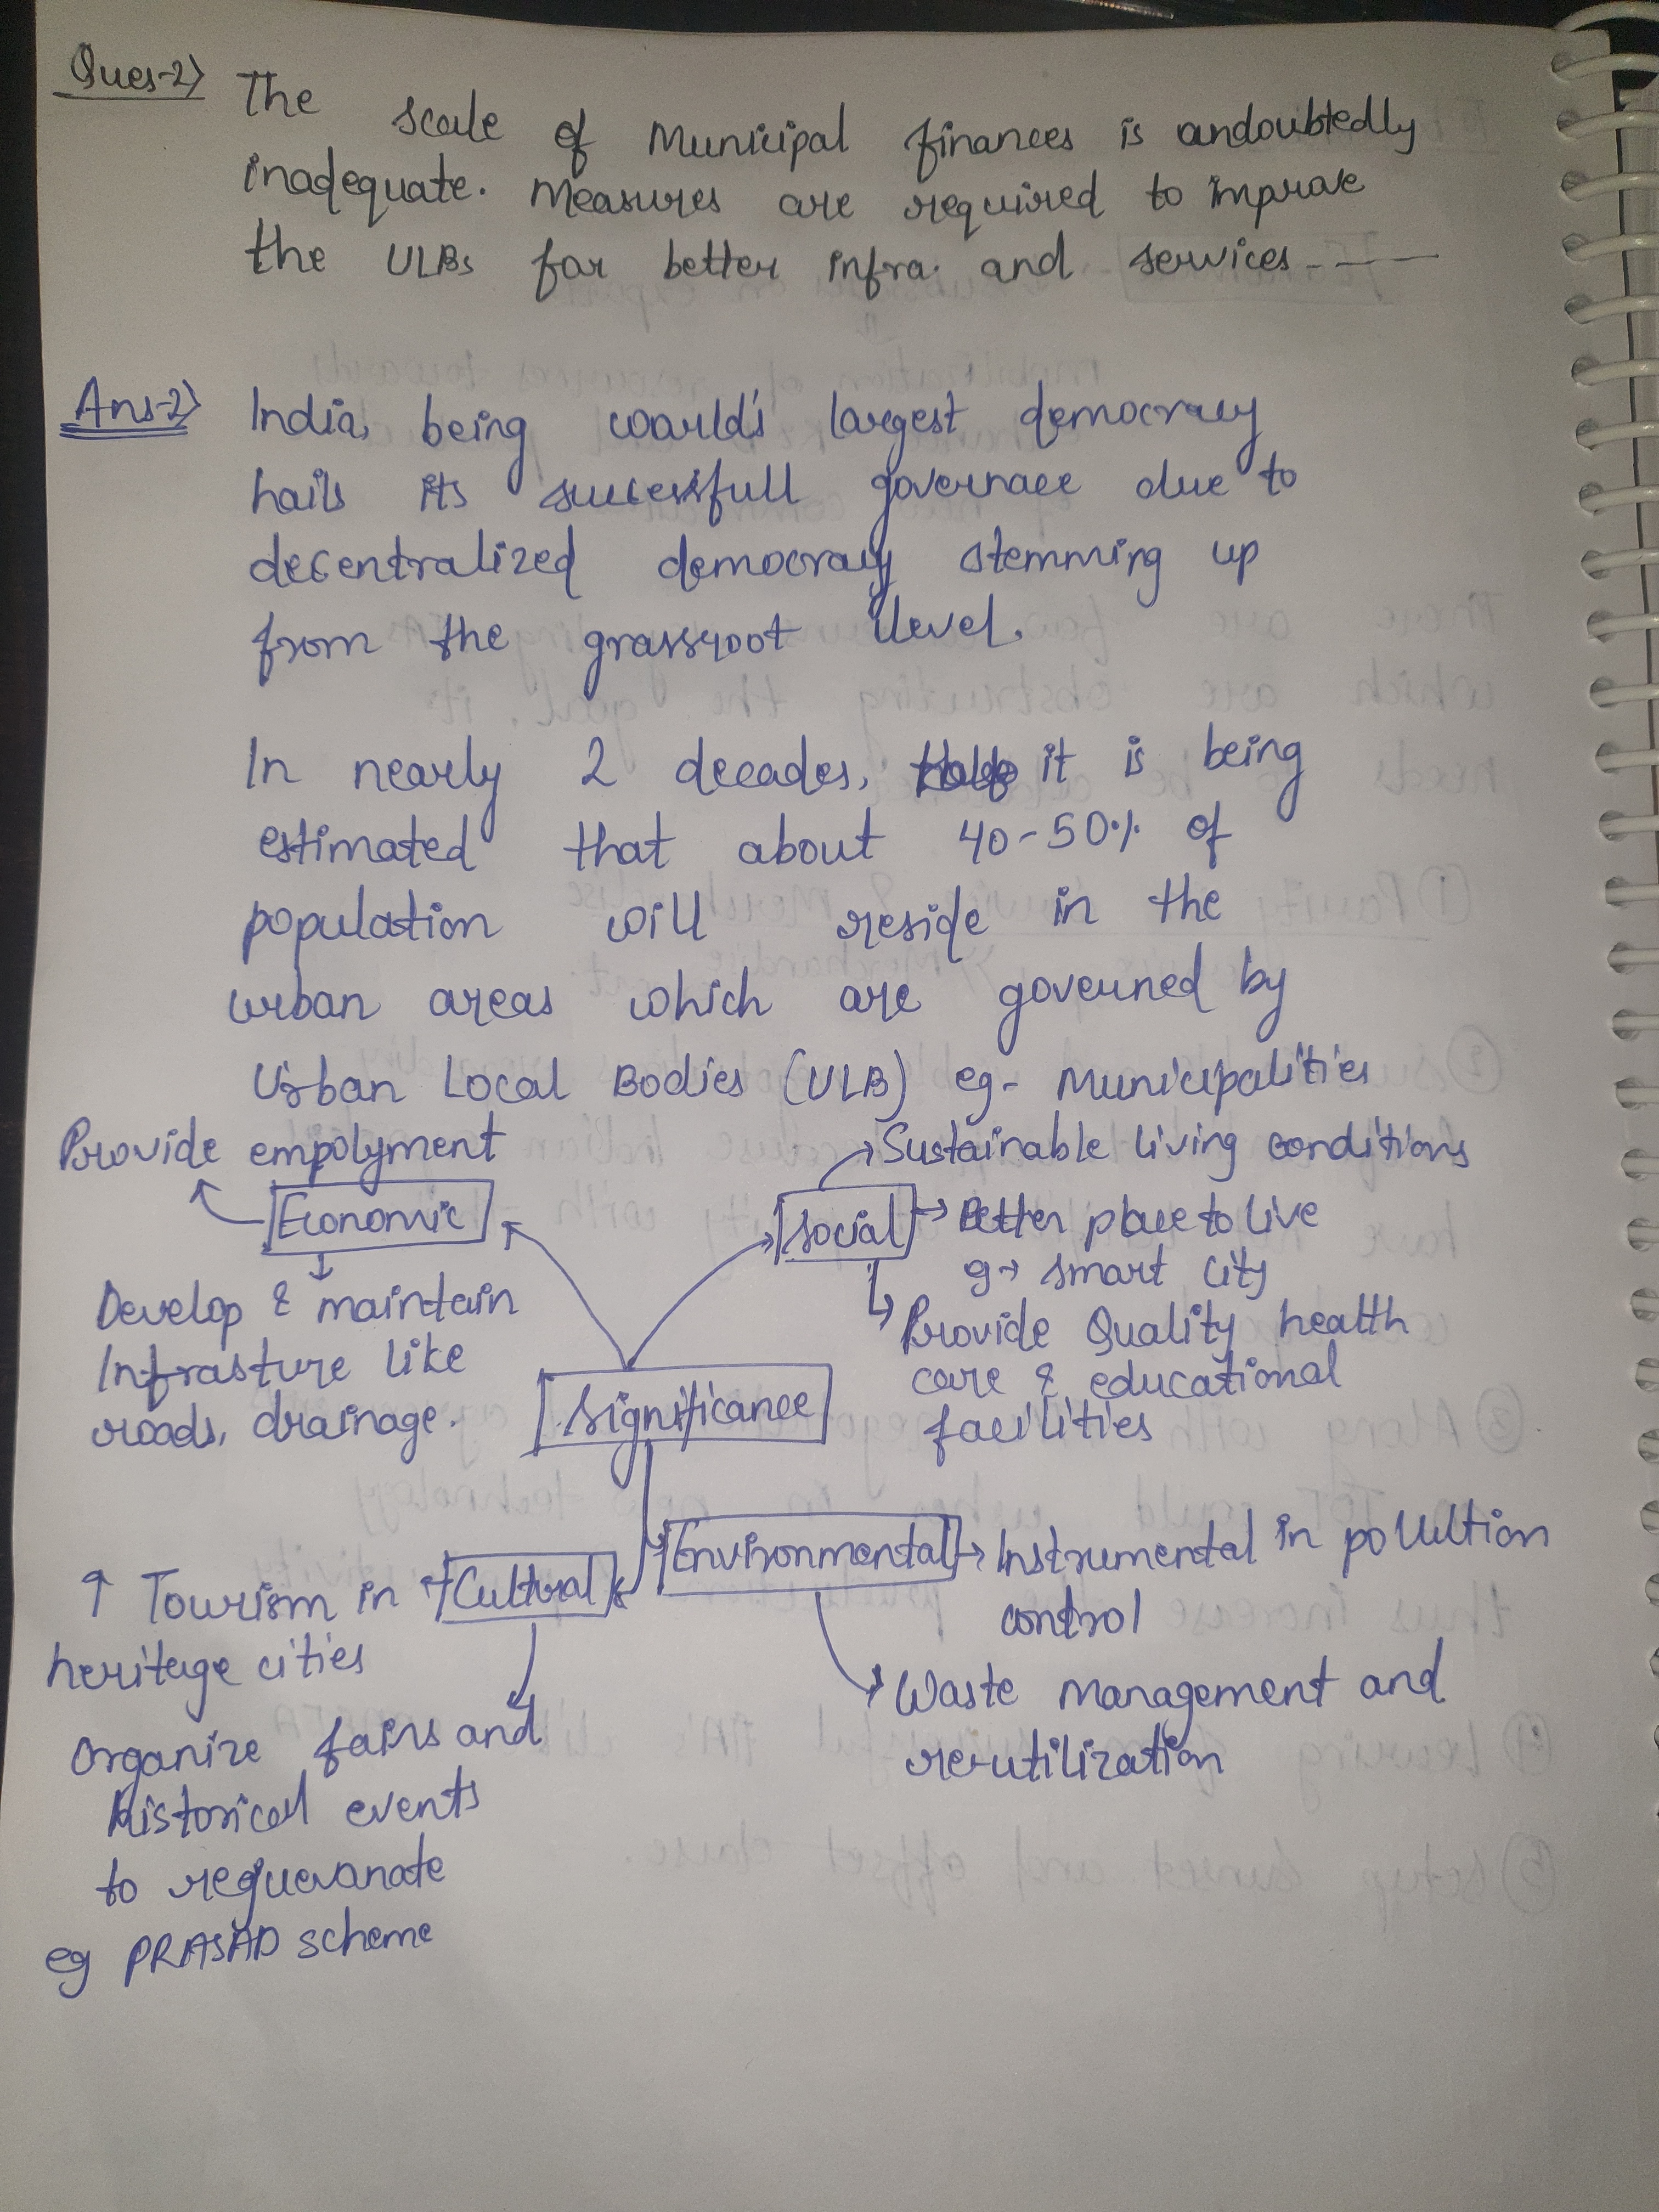 Ques-2) The scale of Municipal finances is undoubtedly
inadequate. Measures are required to improve
the ULBs for better infra. and services - ——
Ans-2) India, being woarld's largest democracy
hails its successfull governace due to
decentralized democracy stemming up
from the grassroot level.
In nearly 2 decades, it is being
estimated that about 40-50% of
population will reside in the
urban areas which are governed by
Urban Local Bodies (ULB) eg- Municipalities
Provide empolyment
Economic
Develop & maintain
Infrasture like
roads, drainage.
Sustainable living conditions
Social → Better place to live
eg → smart city
Provide Quality health
care & educational
facilities
Significance
Environmental → Instrumental in pollultion
control
Waste management and
re-utilization
Cultural
↑ Tourism in
heritage cities
Organize fairs and
historical events
to rejuevanate
eg PRASAD scheme